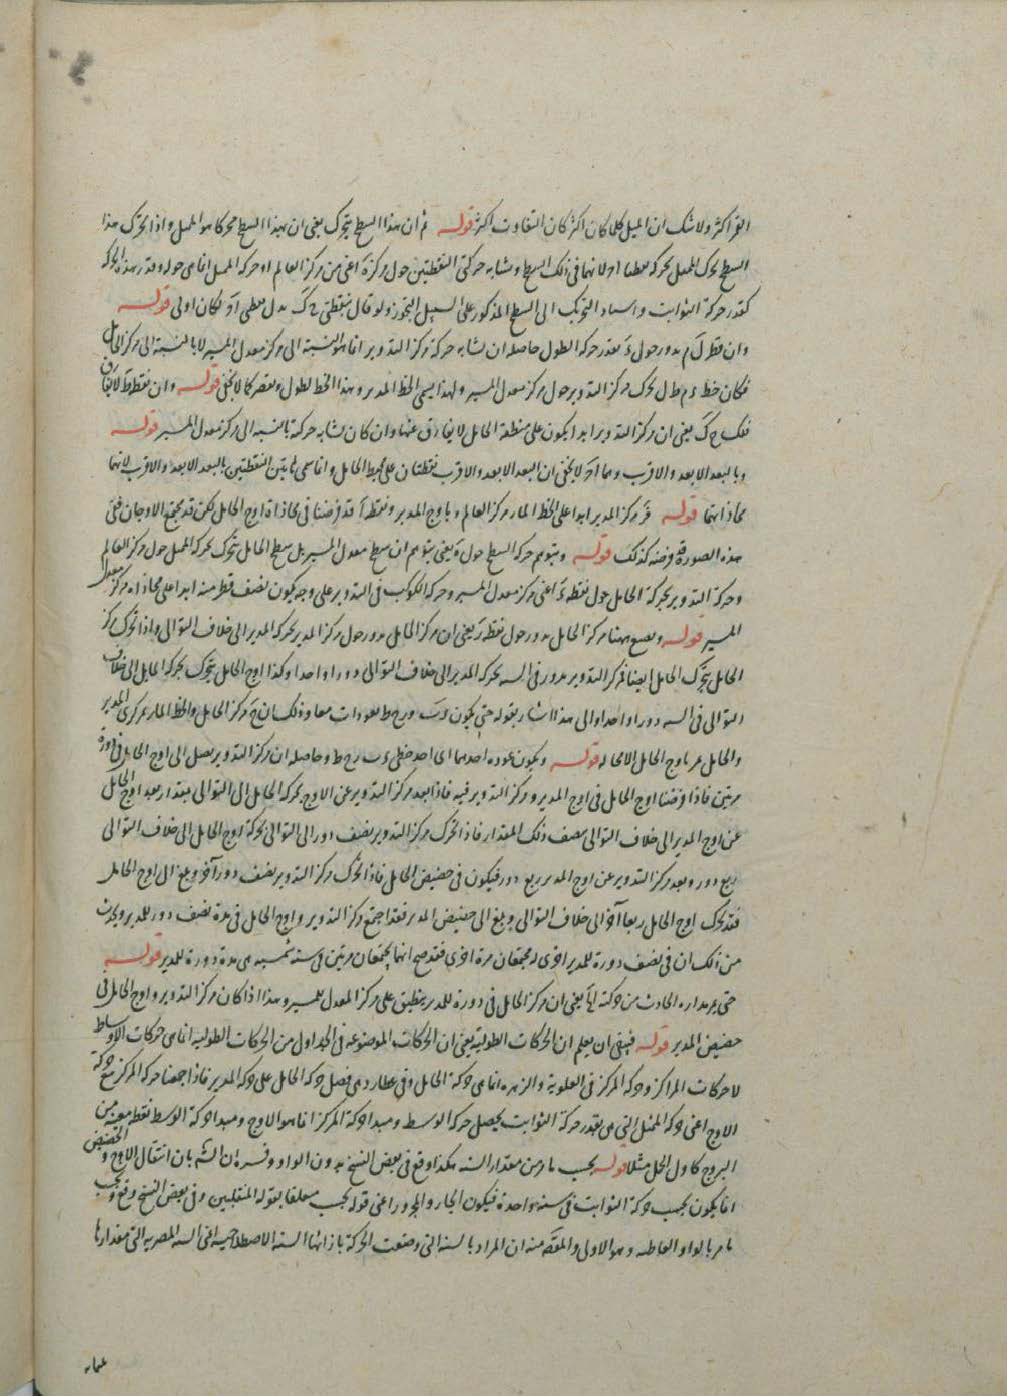 القرآكثر ولا شك ان الميل كلما كان اكثر كان التفاوت اكثر قوله ثم ان هذا السطح يتحرك يعني ان بهذا السطح محركا هو الممثل واذا تحرك هذا
السطح تحرك الممثل بحركة لانهما في ذلك السطح وتشابه حركتي النقطتين حول مركزه اعني من مركز العالم او حركة الممثل انما هي حوله وقدر هذه الحركة
كقدر حركة الثوابت واسناد التحريك الى السطح المذكور على السبيل التجوز ولو قال بنقطتي ح ك بدل نقطتي لكان اولى قوله
وان قطر ل م يدور حول ء بقدر حركة الطول حاصله ان تشابه حركة مركز التدوير انما هو بالنسبة الى مركز معدل المسير لا بالنسبة الى مركز الحامل
فكان خط ء م ط ل يحرك مركز التدوير حول مركز معدل المسير ولهذا يسمى الخط المدير وهذا الخط يطول ويقصر كما لا يخفى قوله وان نقطة ط لا يفارق
فلك ح ك يعني ان مركز التدوير ابدا يكون على منطقة الحامل لا يفارق عنها وان كان تشابه حركته بالنسبة الى مركز معدل المسير قوله
وبالبعد الابعد والاقرب وهما لا يخفى ان البعد الابعد والاقرب نقطتان على محيط الحامل وانما سمي هاتين النقطتين بالبعد الابعد والاقرب لانهما
محاذاتهما قوله مركز المدير ابدا على الخط المار بمركز العالم وباوج المدير ونقطة آ قد فرضنا في محاذاة اوج الحامل لكن قد مجتمع الاوجان ففي
هذه الصورة فرضه كذلك قوله ويتوهم حركة السطح حول ة يعني يتوهم ان سطح معدل المسير بل سطح الحامل يتحرك بحركة الممثل حول مركز العالم
وحركة التدوير بحركة الحامل حول نقطة ء اعني مركز معدل المسير وحركة الكوكب في التدوير على وجه يكون نصف قطر منه ابدا على محاذاة مركز معدل
المسير قوله ويصح ههنا مركز الحامل يدور حول نقطة ر يعني ان مركز الحامل يدور حول مركز المدير بحركة المدير الى خلاف التوالي واذا تحرك مركز
الحامل يتحرك الحامل ايضا فمركز التدوير يدور في السنة بحركة المدير الى خلاف التوالي دورا واحدا وكذا اوج الحامل يتحرك بحركة الحامل الى خلاف
التوالي في السنة دورا واحدا والى هذا اشار بقوله حتى يكون ء ب و ر ح ط يعودات معا وذلك لان ح مركز الحامل والخط المار بمركزي المدير
والحامل يمر باوج الحامل لا محالة قوله ويكون عودة احدهما اي احد خطي ء ب ر ح ط وحاصله ان مركز التدوير يصل الى اوج الحامل في دورة
مرتين فاذا فرضنا اوج الحامل في اوج المدير ومركز التدوير فيه فاذا بعد مركز التدوير عن الاوج بحركة الحامل الى التوالي بمقدار بعد اوج الحامل
عن اوج المدير الى خلاف التوالي بنصف ذلك المقدار فاذا تحرك مركز التدوير نصف دور الى التوالي تحركة اوج الحامل الى خلاف التوالي
ربع دور وبعد مركز التدوير عن اوج المدير ربع دور فيكون في حضيض الحامل فاذا تحرك مركز التدوير نصف دور آخر وبلغ الى اوج الحامل
فقد تحرك اوج الحامل ربعا آخر الى خلاف التوالي وبلغ الى حضيض المدير فقد اجتمع مركز التدوير واوج الحامل في مدة نصف دور للمدير ويحدث
من ذلك ان في نصف دورة للمدير اخرى يجتمعان مرة اخرى فقد صح انهما يجتمعان مرتين في سنة شمسية هي مدة دورة للمدير قوله
حتى يمر مداره الحادث من حركته يعني ان مركز الحامل في دورة للمدير ينطبق على مركز المعدل للمسير وهذا اذا كان مركز التدوير واوج الحامل في
حضيض المدير قوله فينبغي ان يعلم ان الحركات الطولية يعني ان الحركات الموضوعة في الجداول من الحركات الطولية انما هي حركات الاوساط
لا حركات المراكز وحركة المركز في العلوية والزهرة انما هي حركة الحامل وفي عطارد هي فضل حركة الحامل على حركة المدير فاذا جمعنا حركة المركز مع حركة
الاوج اعني حركة الممثل التي هي بقدر حركة الثوابت يحصل حركة الوسط ومبدأ حركة المركز انما هو الاوج ومبدأ حركة الوسط نقطة معينة من
البروج كاول الحمل مثلا قوله بحسب ما مر من مقدار السنة هكذا وقع في بعض النسخ بدون الواو وفسره ان الشه بان انتقال الاوج والحضيض
انما يكون بحسب حركة الثوابت في سنة واحدة فيكون الجار والمجرور اعني قوله بحسب معلقا بقوله المنتقلين وفي بعض النسخ وقع وبحسب
ما مر بالواو العاطفة وهو الاولى والمقصود منه ان المراد بالسنة التي وضعت الحركة بازائها السنة الاصطلاحية اعني السنة المصرية التي مقدارها